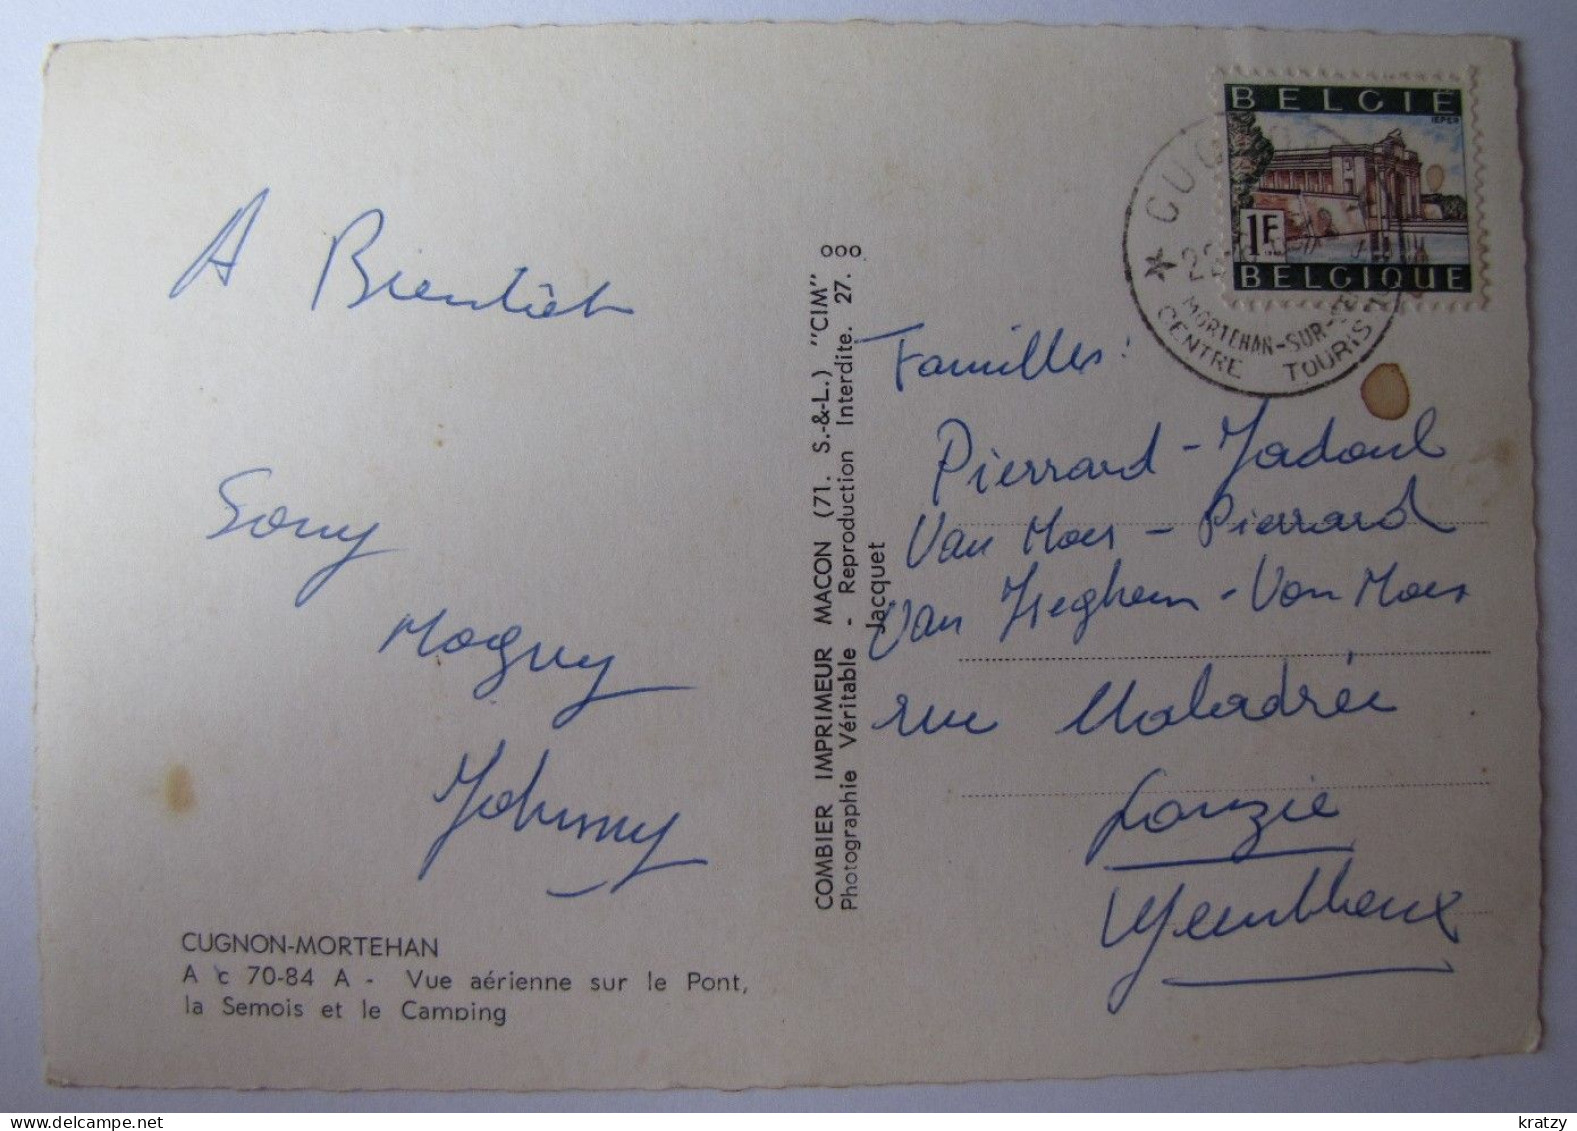 A Bientôt
Sony
Maguy
Johnny
CUGNON-MORTEHAN
A c 70-84 A - Vue aérienne sur le Pont,
la Semois et le Camping
COMBIER IMPRIMEUR MACON (71. S.-&-L.) "CIM"
Photographie Véritable - Reproduction Interdite. 27.
Jacquet
BELGIË
IEPER
1F
BELGIQUE
MORTEHAN-SUR-
CENTRE TOURIS
Familles:
Pierrard - Jadoul
Van Moer - Pierrard
Van Iseghem - Van Moer
rue Maladrée
Lonzée
Gembloux
kratzy